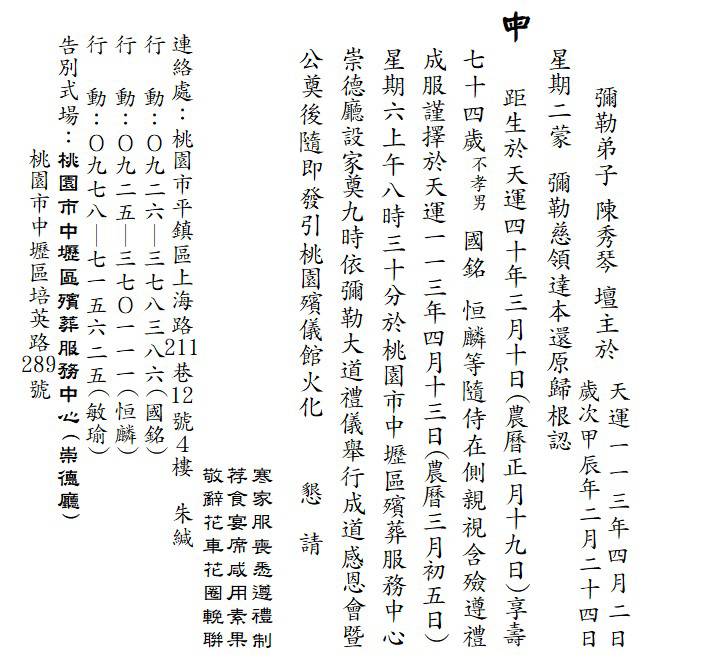 中
彌勒弟子 陳秀琴 壇主於 天運一一三年四月二日
歲次甲辰年二月二十四日
星期二蒙 彌勒慈領達本還原歸根認
中
距生於天運四十年三月十日(農曆正月十九日)享壽
七十四歲 不孝男 國銘 恒麟等隨侍在側親視含殮遵禮
成服謹擇於天運一一三年四月十三日(農曆三月初五日)
星期六上午八時三十分於桃園市中壢區殯葬服務中心
崇德廳設家奠九時依彌勒大道禮儀舉行成道感恩會暨
公奠後隨即發引桃園殯儀館火化 懇請
寒家服喪悉遵禮制
荐食宴席咸用素果
敬辭花車花圈輓聯
連絡處:桃園市平鎮區上海路211巷12號4樓 朱緘
行 動:０九二六—三七八三八六(國銘)
行 動:０九二五—三七０一一一(恒麟)
行 動:０九七八—七一五六二五(敏瑜)
告別式場:桃園市中壢區殯葬服務中心(崇德廳)
桃園市中壢區培英路289號